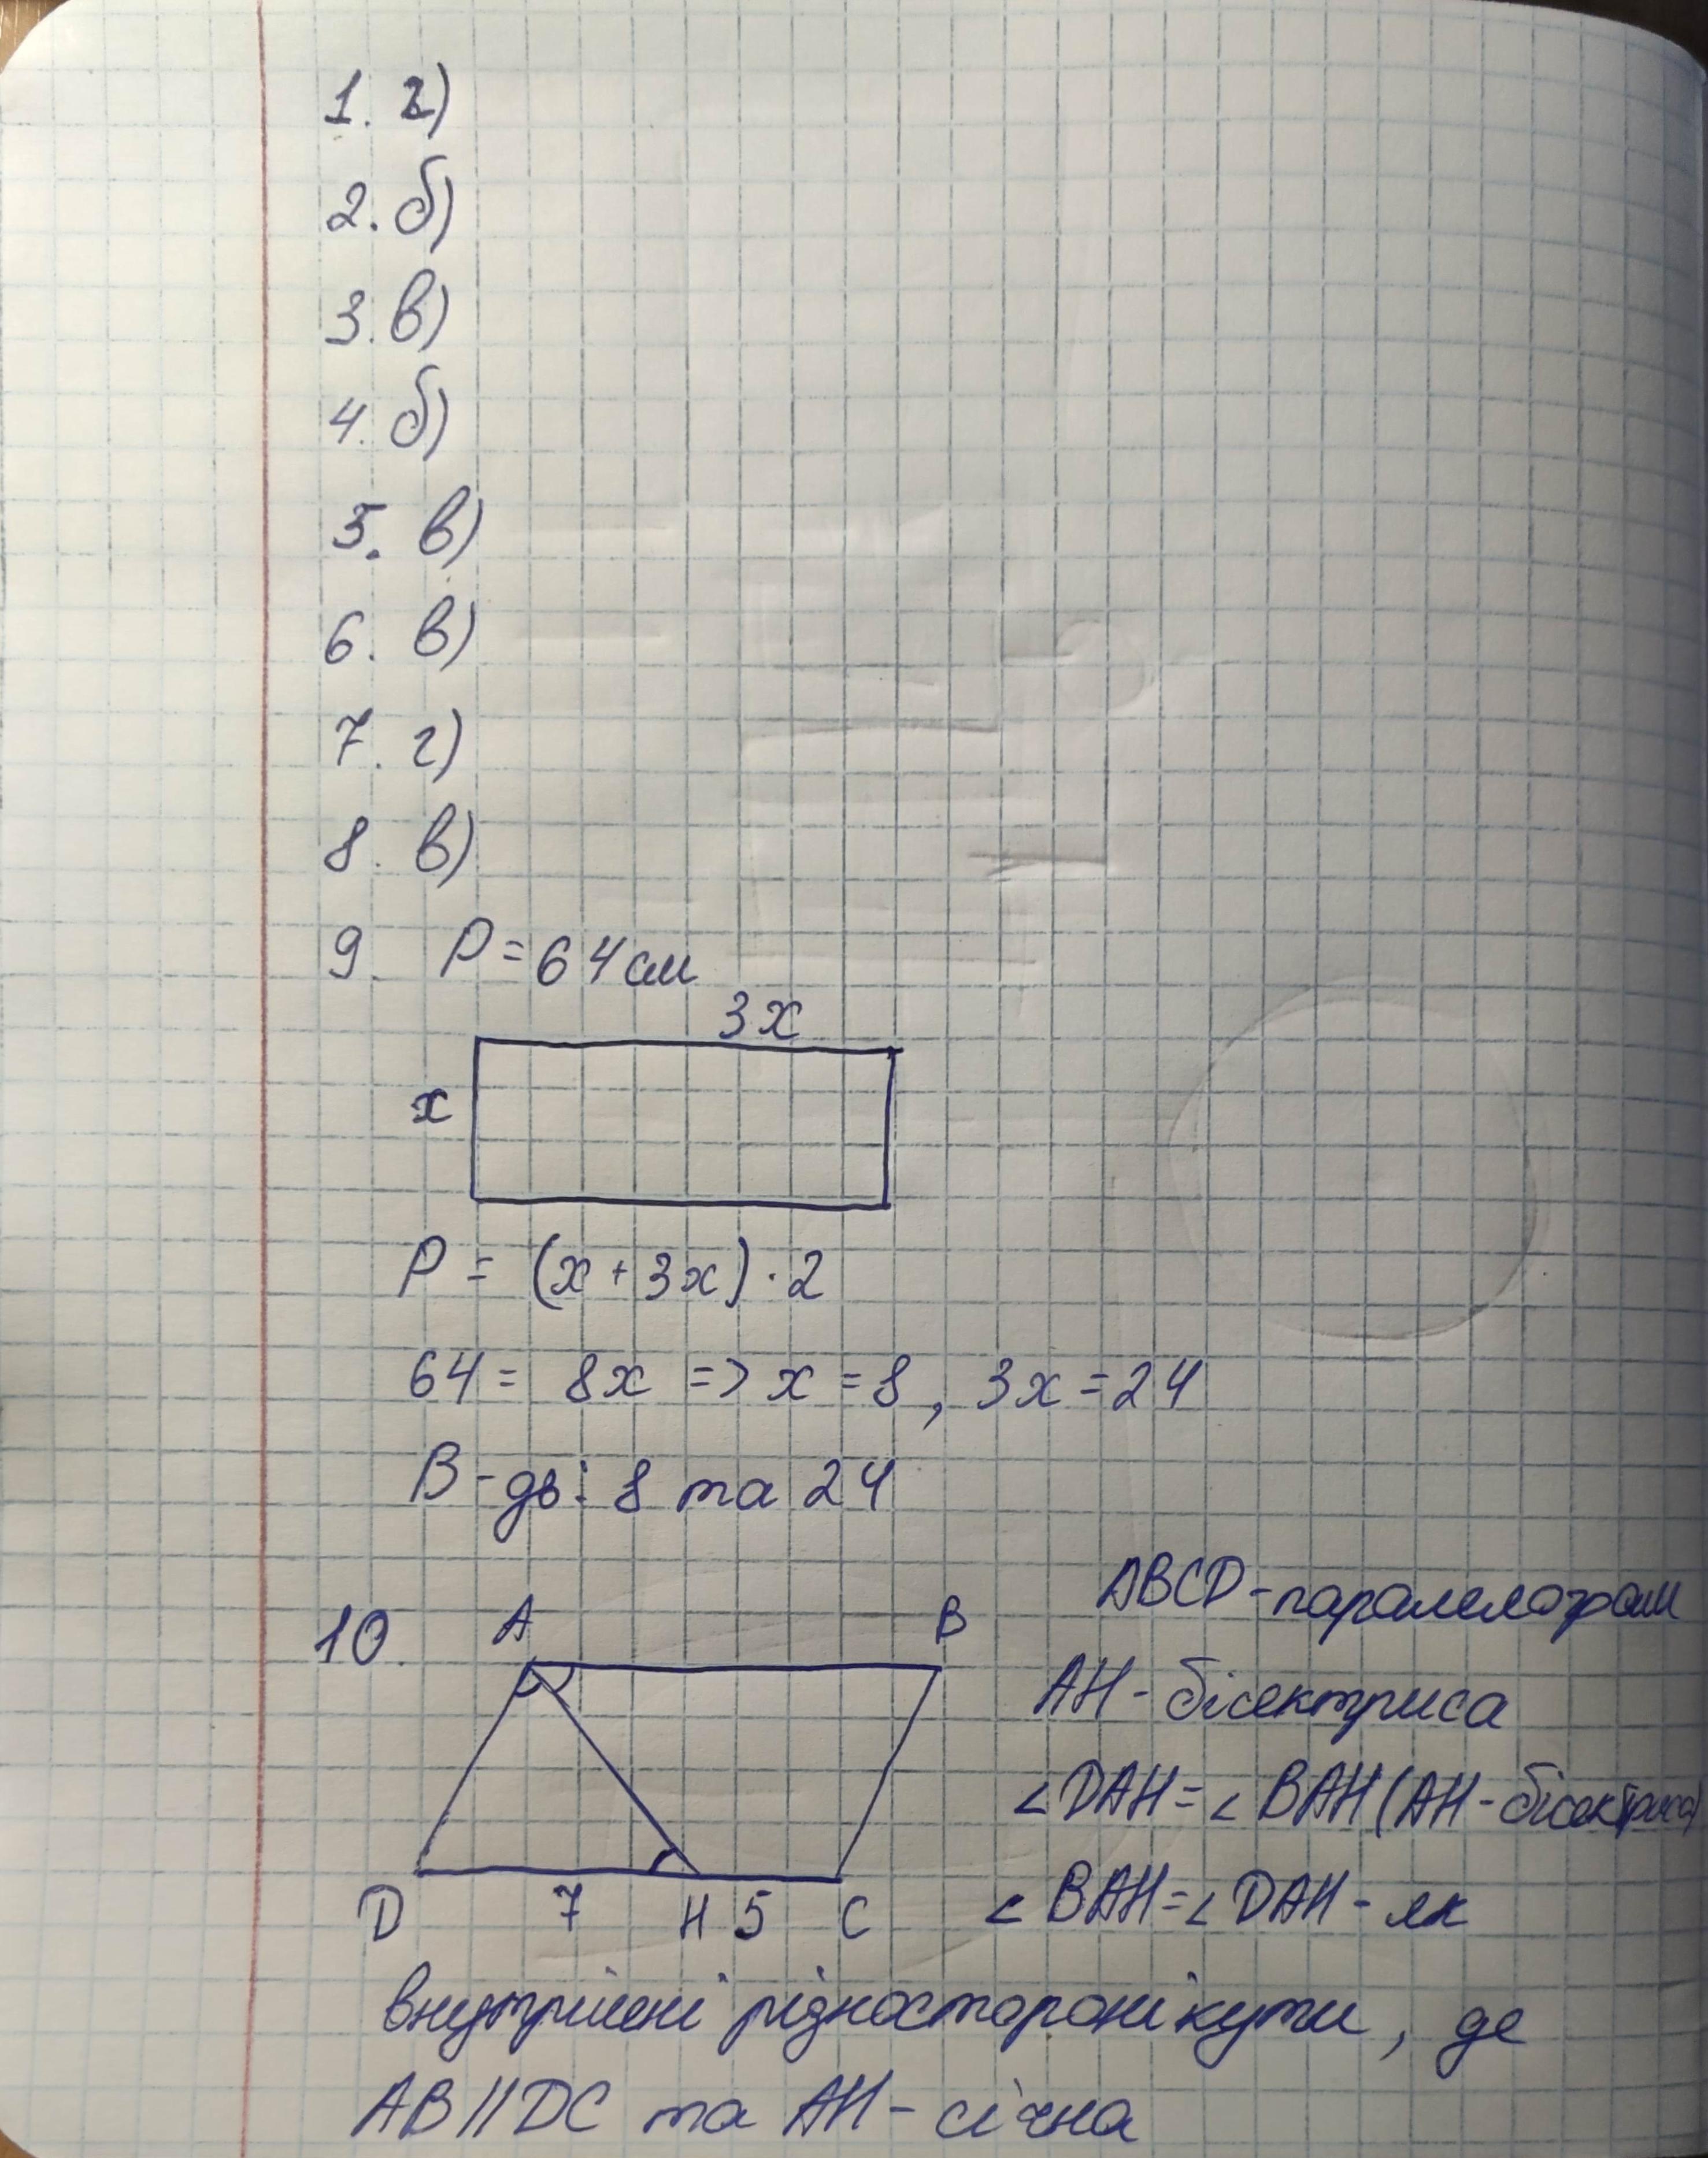 1. г)
2. б)
3. в)
4. б)
5. в)
6. в)
7. г)
8. в)
9. P = 64 см
3x
x
P = (x + 3x) · 2
64 = 8x => x = 8, 3x = 24
В-дь: 8 та 24
10.
A B
D 7 H 5 C
ABCD - паралелограм
AH - бісектриса
∠DAH = ∠BAH (AH - бісектриса)
∠BAH = ∠DAH - як
внутрішні різносторонні кути, де
AB || DC та AH - січна